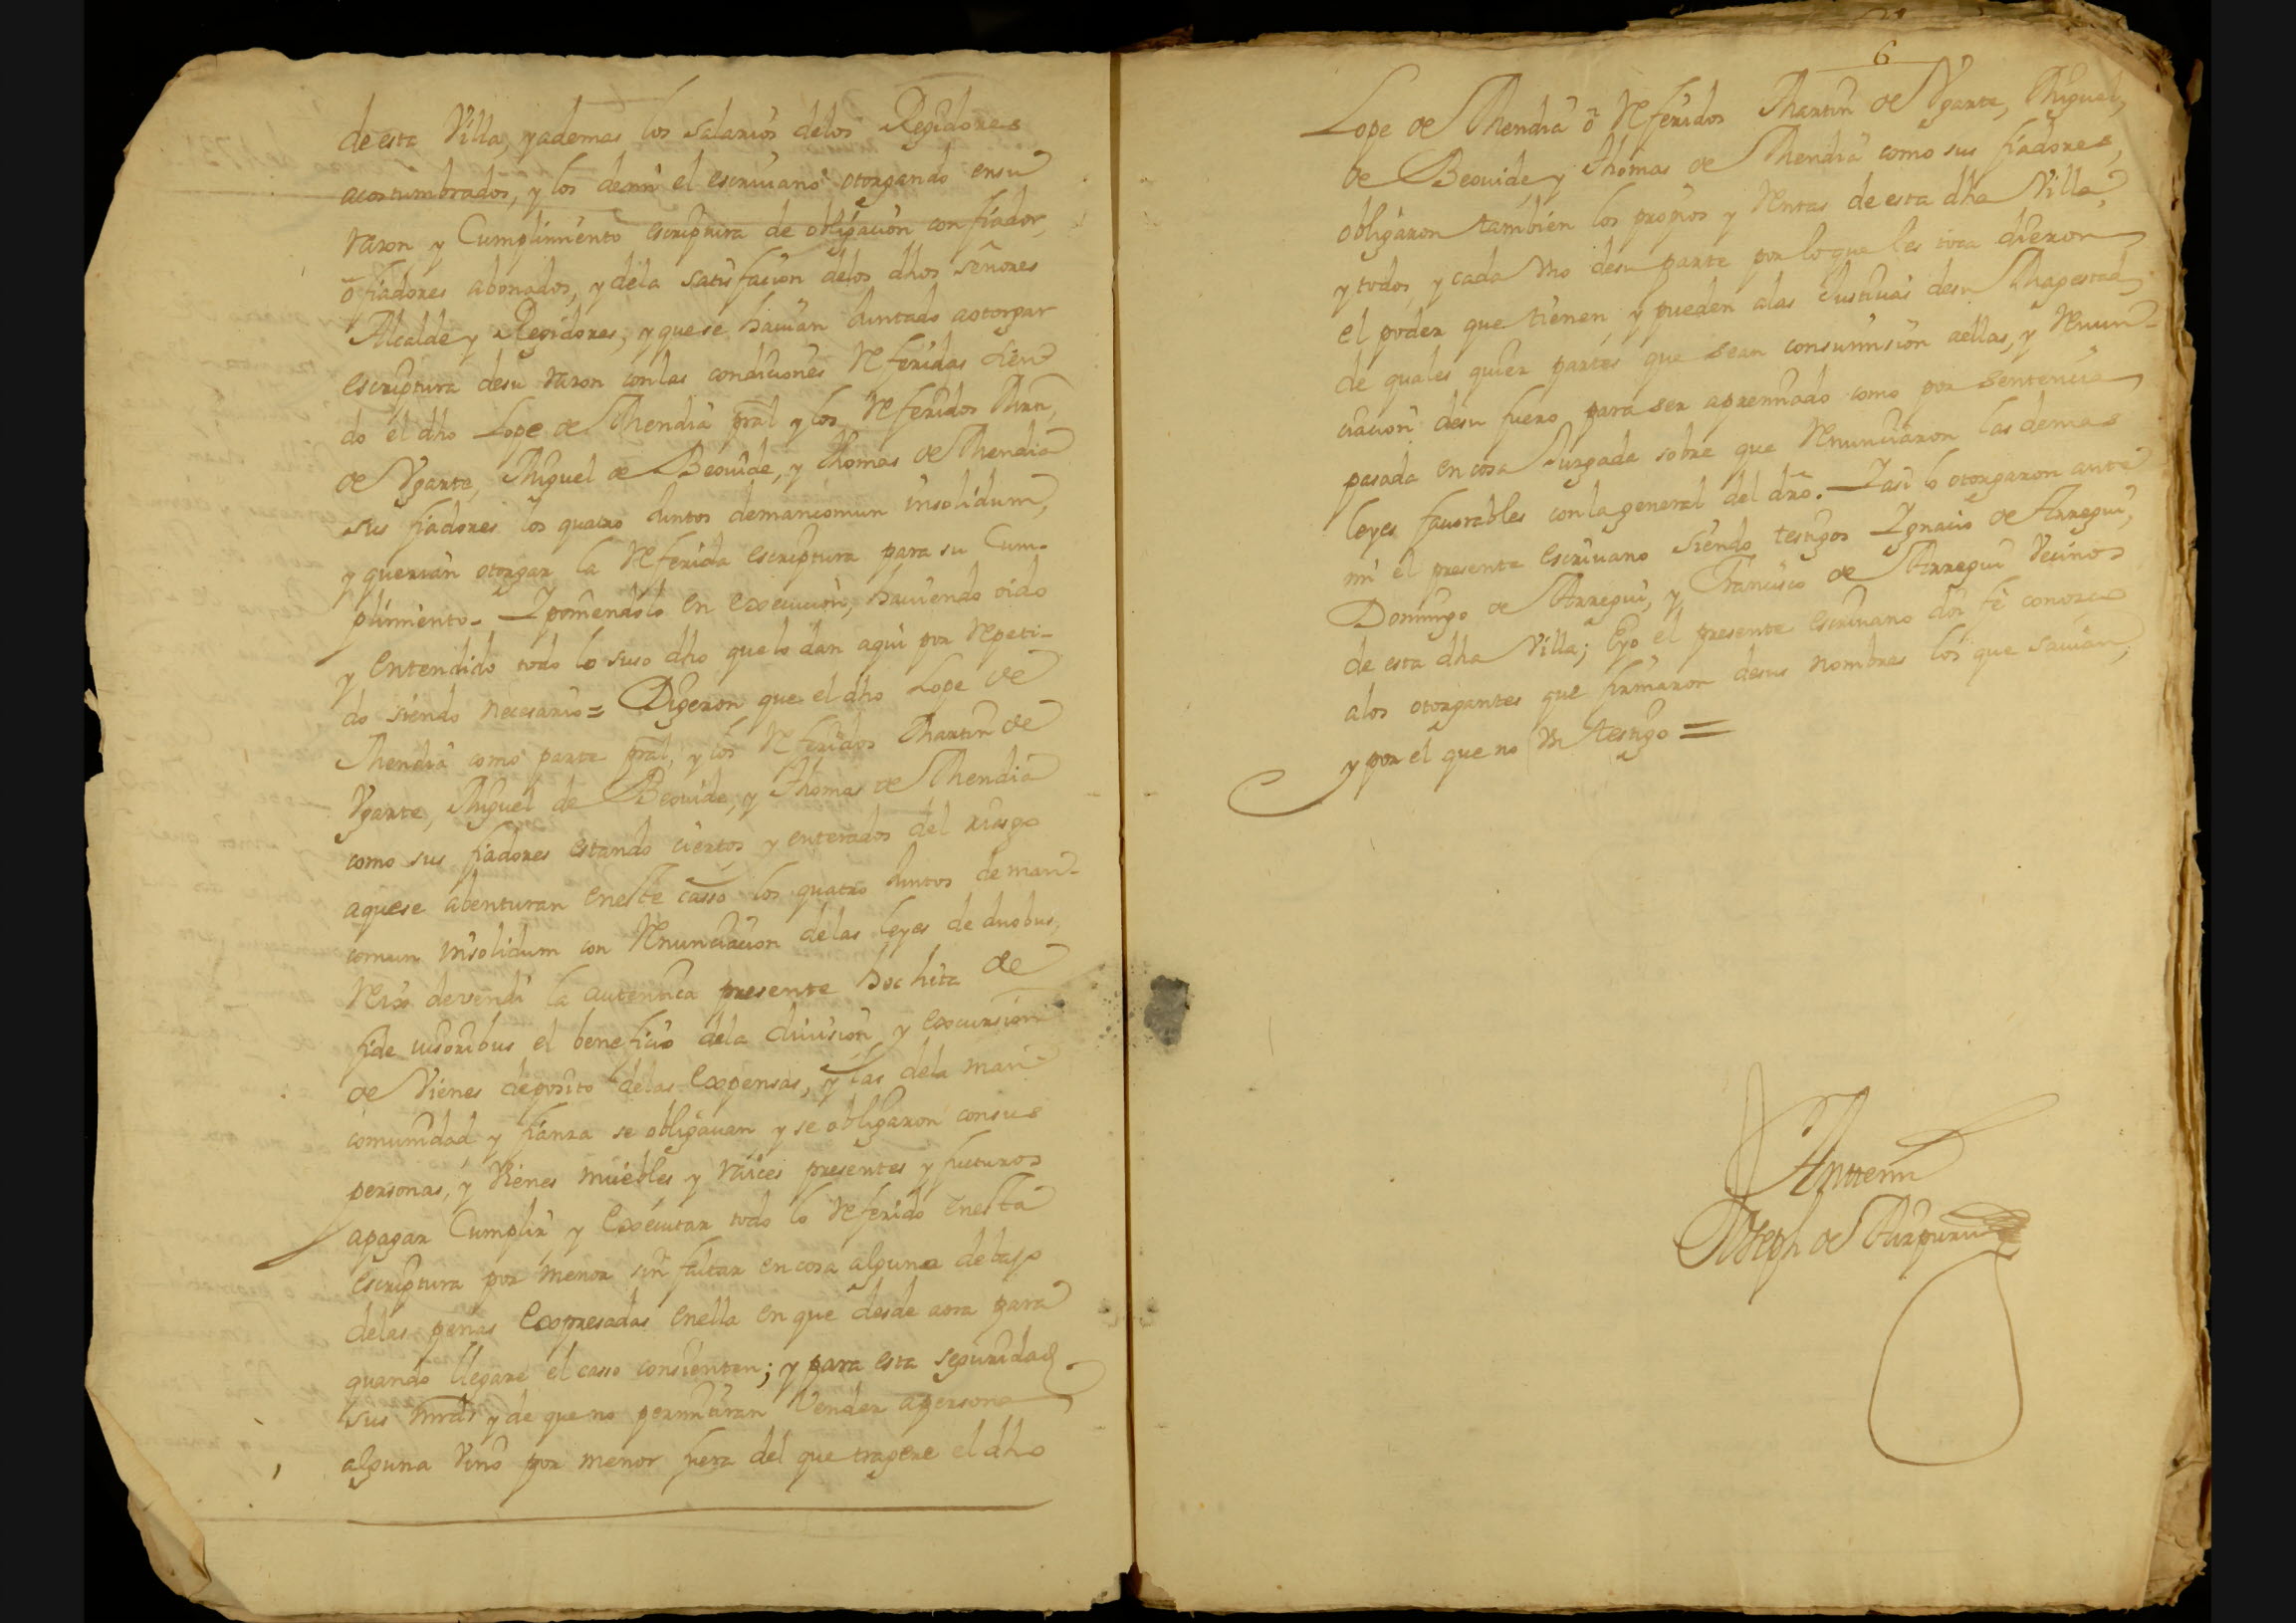 de esta Villa, y ademas los salarios delos Regidores
acostumbrados, y los demi el escriuano otorgando ensu
razon y Cumplimiento escriptura de obligacion con fiador,
ō fiadores abonados, y dela satisfacion delos dhos señores
Alcalde y Regidores, y que se hauian Juntado aotorgar
escriptura desu razon con las condiciones Referidas sien
do el dho Lope de Mendia pral y los Referidos Mrn,
de Vgarte, Miguel de Beouide, y Thomas de Mendia
sus fiadores los quatro Juntos demancomun insolidum,
y querian otorgar la Referida escriptura para su Cum-
plimiento- Y poniendolo en execucion, hauiendo oido
y entendido todo lo suso dho que lo dan aqui por Repeti-
do siendo necesario = Digeron que el dho Lope de
Mendia como parte pral, y los Referidos Martin de
Vgarte, Miguel de Beouide, y Thomas de Mendia
como sus fiadores estando ciertos y enterados del riesgo
aquese abenturan eneste casso los quatro Juntos deman-
comun insolidum con Renunciacion delas leyes de duobus,
Reix devendi la autentica presente hoc hita de
fide iusoribus el beneficio dela diuision y excursion
de Vienes deposito delas expensas, y las dela man
comunidad y fianza se obligauan y se obligaron consus
personas, y Vienes muebles y raices presentes y futuros
apagar Cumplir y executar todo lo Referido enesta
escriptura por menor sin faltar en cosa alguna debajo
delas penas expresadas enella en que desde aora para
quando llegare el casso consienten; y para esta seguridad
sus mrds y de que no permitiran Vender apersona
alguna Vino por menor fuera del que tragere el dho
6
Lope de Mendia ō Referidos Martin de Vgarte, Miguel,
de Beouide y Thomas de Mendia como sus fiadores,
obligaron tambien los propios y Rentas de esta dha Villa,
y todos, y cada vno desu parte por loque les toca dieron
el poder que tienen y pueden alas Justicias desu Magestad
de quales quier partes que sean consumision aellas, y Renun-
ciacion desu fuero para ser apremiado como por sentencia
pasada en cosa Juzgada sobre que Renunciaron las demas
leyes fauorables con la general del dro. Y asi lo otorgaron ante
mi el presente escriuano siendo testigos Ygnacio de Arregui,
Domingo de Arregui, y Francisco de Arregui Vecinos
de esta dha Villa; Eyo el presente escriuano doi fe conozco
alos otorgantes que firmaron desus nombres los que sauian,
y por el que no vn testigo =
Anttemi
Joseph de Aizpuru